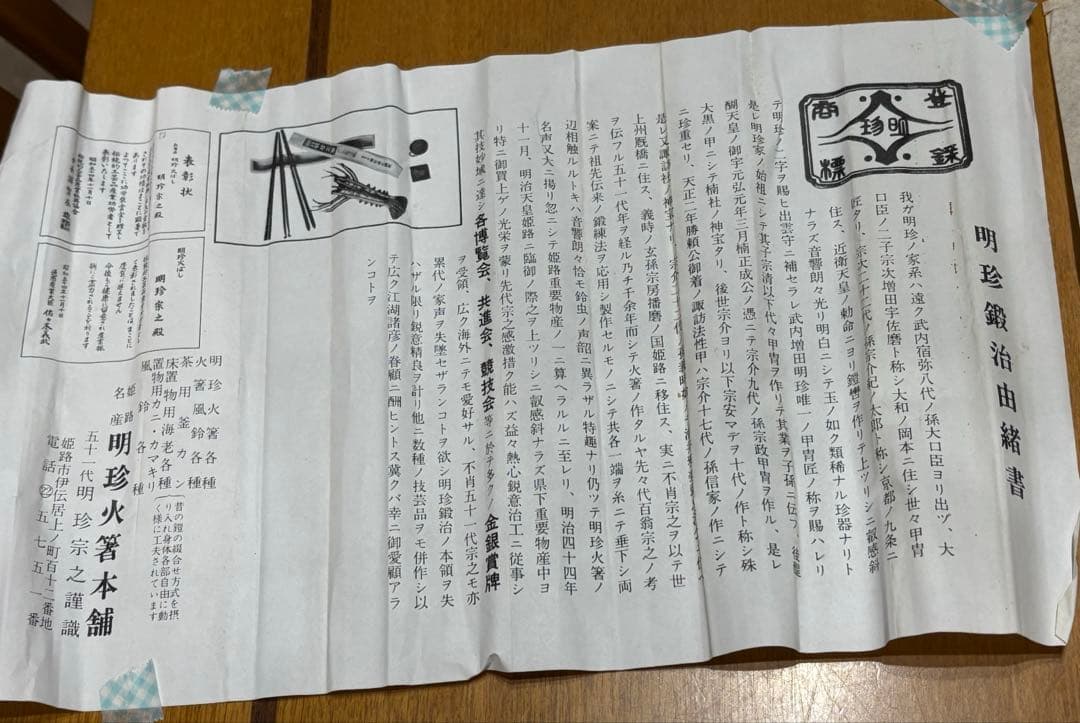 明珍鍛冶由緒書
登録
商標
明珍
我が明珍ノ家系ハ遠ク武内宿弥八代ノ孫大口臣ヨリ出ヅ、大
口臣ノ二子宗次増田宇佐磨ト称シ大和ノ岡本ニ住シ世々甲冑
匠タリ、宗次二十二代ノ孫宗介紀ノ太郎ト称シ京都ノ九条ニ
住ス、近衛天皇ノ勅命ニヨリ鎧轡ヲ作リテ上ツリシニ叡感斜
ナラズ音響朗々光リ明白ニシテ玉ノ如ク類稀ナル珍器ナリト
テ明珍ノ二字ヲ賜ヒ出雲守ニ補セラレ武内増田明珍唯一ノ甲冑匠ノ称ヲ賜ハレリ
是レ明珍家ノ始祖ニシテ其子宗清以下代々甲冑ヲ作リテ其業ヲ子孫ニ伝フ
醐天皇ノ御宇元弘元年二月楠正成公ノ憑ニテ宗介九代ノ孫宗政甲冑ヲ作ル、是レ
大黒ノ甲ニシテ楠社ノ神宝タリ、後世宗介ヨリ以下宗安マデヲ十代ノ作ト称シ殊
ニ珍重セリ、天正二年勝頼公御着ノ諏訪法性甲ハ宗介十七代ノ孫信家ノ作ニシテ
是レ又諏訪社ノ神宝ナリ、宗介
上州厩橋ニ住ス、義時ノ玄孫宗房播磨ノ国姫路ニ移住ス、実ニ不肖宗之ヲ以テ世
ヲ伝フル五十一代年ヲ経ル乃チ千余年而シテ火箸ノ作タルヤ先々代百翁宗之ノ考
案ニテ祖先伝来ノ鍛練法ヲ応用シ製作セルモノニシテ共各一端ヲ糸ニテ垂下シ両
辺相触ルルトキハ音響朗々恰モ鈴虫ノ声韶ニ異ラザル特趣ナリ仍ツテ明珍火箸ノ
名声又大ニ揚リ忽ニシテ姫路重要物産ノ一ニ算ヘラルルニ至レリ、明治四十四年
十一月、明治天皇姫路ニ臨御ノ際之ヲ上ツリシニ叡感斜ナラズ県下重要物産中ヨ
リ特ニ御買上ゲノ光栄ヲ蒙リ先代宗之感激措ク能ハズ益々熱心鋭意治工ニ従事シ
其技妙域ニ達シ各博覧会、共進会、競技会等ニ於テ多クノ金銀賞牌
ヲ受領、広ク海外ニテモ愛好サル、不肖五十一代宗之モ亦
累代ノ家声ヲ失墜セザランコトヲ欲シ明珍鍛治ノ本領ヲ失
ハザル限リ鋭意精良ヲ計リ他ニ数種ノ技芸品ヲモ併作シ以
テ広ク江湖諸彦ノ眷顧ニ酬ヒントス冀クバ幸ニ御愛顧アラ
ンコトヲ
表彰状
明珍宗之殿
明珍火ばし
明珍宗之殿
明珍火箸各種
火箸風鈴各種
茶用釜カン
床置物用海老各種
置物用カニ・カマキリ
風鈴各種
昔の鎧の綴合せ方式を摂
り入れ身体各部自由に動
く様に工夫されています
姫路
名産
明珍火箸本舗
五十一代明珍宗之謹識
姫路市伊伝居上ノ町百十二番地
電話㉒五七五一番